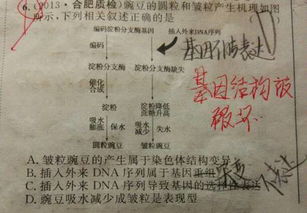 6.(2013·合肥质检)豌豆的圆粒和皱粒产生机理如图
所示,下列相关叙述正确的是
编码淀粉分支酶基因 插入外来DNA序列
编码 编码 基因不能表达
淀粉分支酶 淀粉分支酶缺失
催化合成
淀粉 淀粉降低蔗糖升高
基因结构被
破坏.
吸水膨胀 保水 吸水减少 失水
圆粒成熟豌豆 皱粒成熟豌豆
A. 皱粒豌豆的产生属于染色体结构变异
B. 插入外来 DNA 序列属于基因重组
C. 插入外来 DNA 序列导致基因的选择性表达
D. 豌豆吸水减少成皱粒是表现型